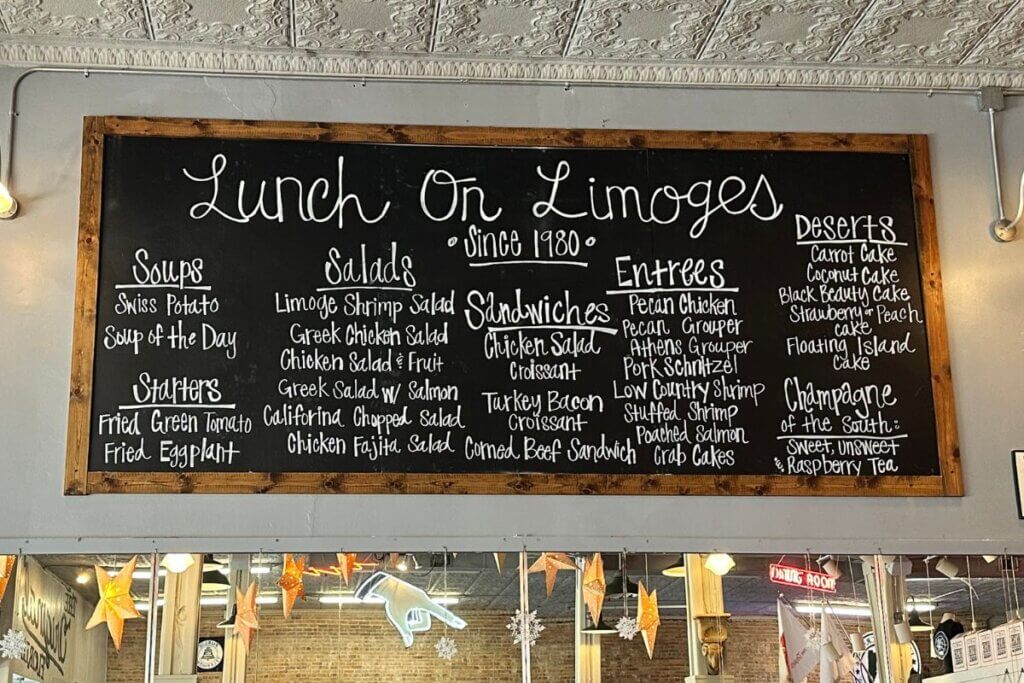 Lunch On Limoges
• Since 1980 •
Soups
Swiss Potato
Soup of the Day
Starters
Fried Green Tomato
Fried Eggplant
Salads
Limoge Shrimp Salad
Greek Chicken Salad
Chicken Salad & Fruit
Greek Salad w/ Salmon
Califorina Chopped Salad
Chicken Fajita Salad
Sandwiches
Chicken Salad
Croissant
Turkey Bacon
Croissant
Corned Beef Sandwich
Entrees
Pecan Chicken
Pecan Grouper
Athens Grouper
Pork Schnitzel
Low Country Shrimp
Stuffed Shrimp
Poached Salmon
Crab Cakes
Deserts
Carrot Cake
Coconut Cake
Black Beauty Cake
Strawberry or Peach
cake
Floating Island
Cake
Champagne
of the South:
Sweet, Unsweet
& Raspberry Tea
DINING ROOM